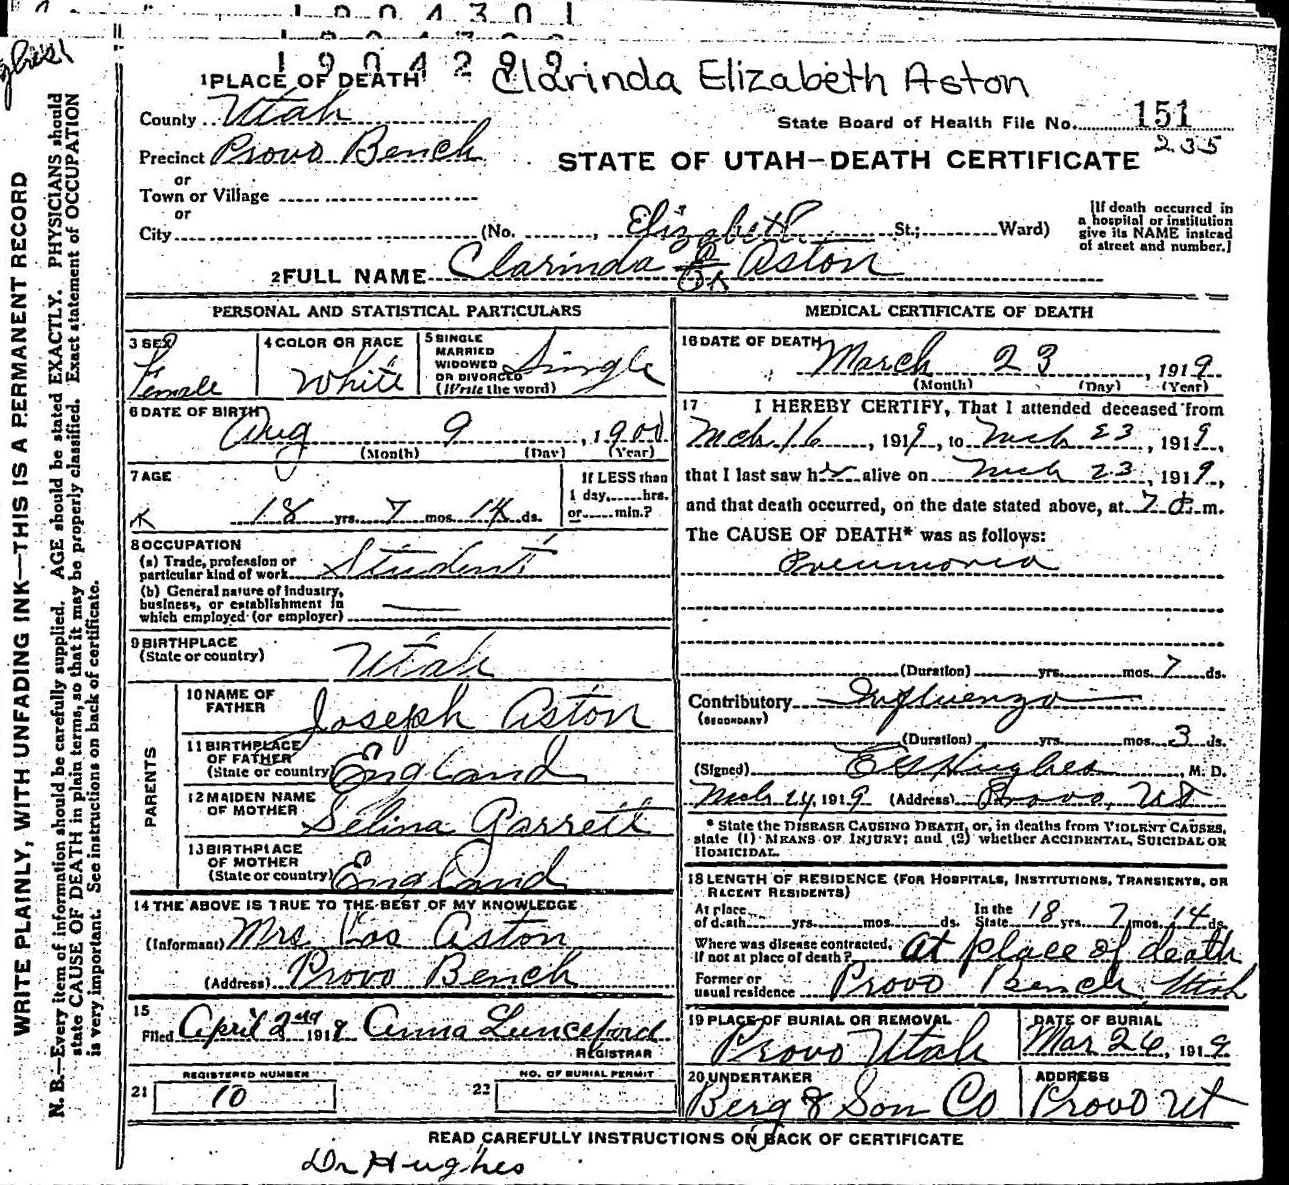 1904301
1904299
Clarinda Elizabeth Aston
1 PLACE OF DEATH
County Utah
State Board of Health File No. 151
235
Precinct Provo Bench
STATE OF UTAH—DEATH CERTIFICATE
or
Town or Village
or
City (No. , St.; Ward)
[If death occurred in
a hospital or institution
give its NAME instead
of street and number.]
Elizabeth
2 FULL NAME Clarinda Aston
OK
PERSONAL AND STATISTICAL PARTICULARS
3 SEX
Female
4 COLOR OR RACE
White
5 SINGLE
MARRIED
WIDOWED
OR DIVORCED
(Write the word)
Single
6 DATE OF BIRTH
Aug 9, 1900
(Month) (Day) (Year)
7 AGE
18 yrs. 7 mos. 14 ds.
If LESS than
1 day, hrs.
or min.?
8 OCCUPATION
(a) Trade, profession or
particular kind of work Student
(b) General nature of industry,
business, or establishment in
which employed (or employer)
9 BIRTHPLACE
(State or country)
Utah
PARENTS
10 NAME OF
FATHER
Joseph Aston
11 BIRTHPLACE
OF FATHER
(State or country)
England
12 MAIDEN NAME
OF MOTHER
Selina Garrett
13 BIRTHPLACE
OF MOTHER
(State or country)
England
14 THE ABOVE IS TRUE TO THE BEST OF MY KNOWLEDGE
(Informant) Mrs Aston
(Address) Provo Bench
15
Filed April 2nd 1919 Anna Lunceford
REGISTRAR
21 REGISTERED NUMBER
10
22 NO. OF BURIAL PERMIT
MEDICAL CERTIFICATE OF DEATH
16 DATE OF DEATH
March 23, 1919
(Month) (Day) (Year)
17 I HEREBY CERTIFY, That I attended deceased from
Mch 16, 1919, to Mch 23, 1919,
that I last saw her alive on Mch 23, 1919,
and that death occurred, on the date stated above, at 7 P. m.
The CAUSE OF DEATH* was as follows:
Pneumonia
(Duration) yrs. mos. 7 ds.
Contributory Influenza
(SECONDARY)
(Duration) yrs. mos. 3 ds.
(Signed) E G Hughes, M. D.
Mch 24, 1919 (Address) Provo, Ut
* State the DISEASE CAUSING DEATH, or, in deaths from VIOLENT CAUSES,
state (1) MEANS OF INJURY; and (2) whether ACCIDENTAL, SUICIDAL OR
HOMICIDAL.
18 LENGTH OF RESIDENCE (FOR HOSPITALS, INSTITUTIONS, TRANSIENTS, OR
RECENT RESIDENTS)
At place
of death yrs. mos. ds. In the State 18 yrs. 7 mos. 14 ds.
Where was disease contracted,
if not at place of death? at place of death
Former or
usual residence Provo Bench, Utah
19 PLACE OF BURIAL OR REMOVAL
Provo Utah
DATE OF BURIAL
Mar 26, 1919
20 UNDERTAKER
Berg & Son Co
ADDRESS
Provo Ut
READ CAREFULLY INSTRUCTIONS ON BACK OF CERTIFICATE
Dr Hughes
WRITE PLAINLY, WITH UNFADING INK—THIS IS A PERMANENT RECORD
N. B.—Every item of information should be carefully supplied. AGE should be stated EXACTLY. PHYSICIANS should
state CAUSE OF DEATH in plain terms, so that it may be properly classified. Exact statement of OCCUPATION
is very important. See instructions on back of certificate.